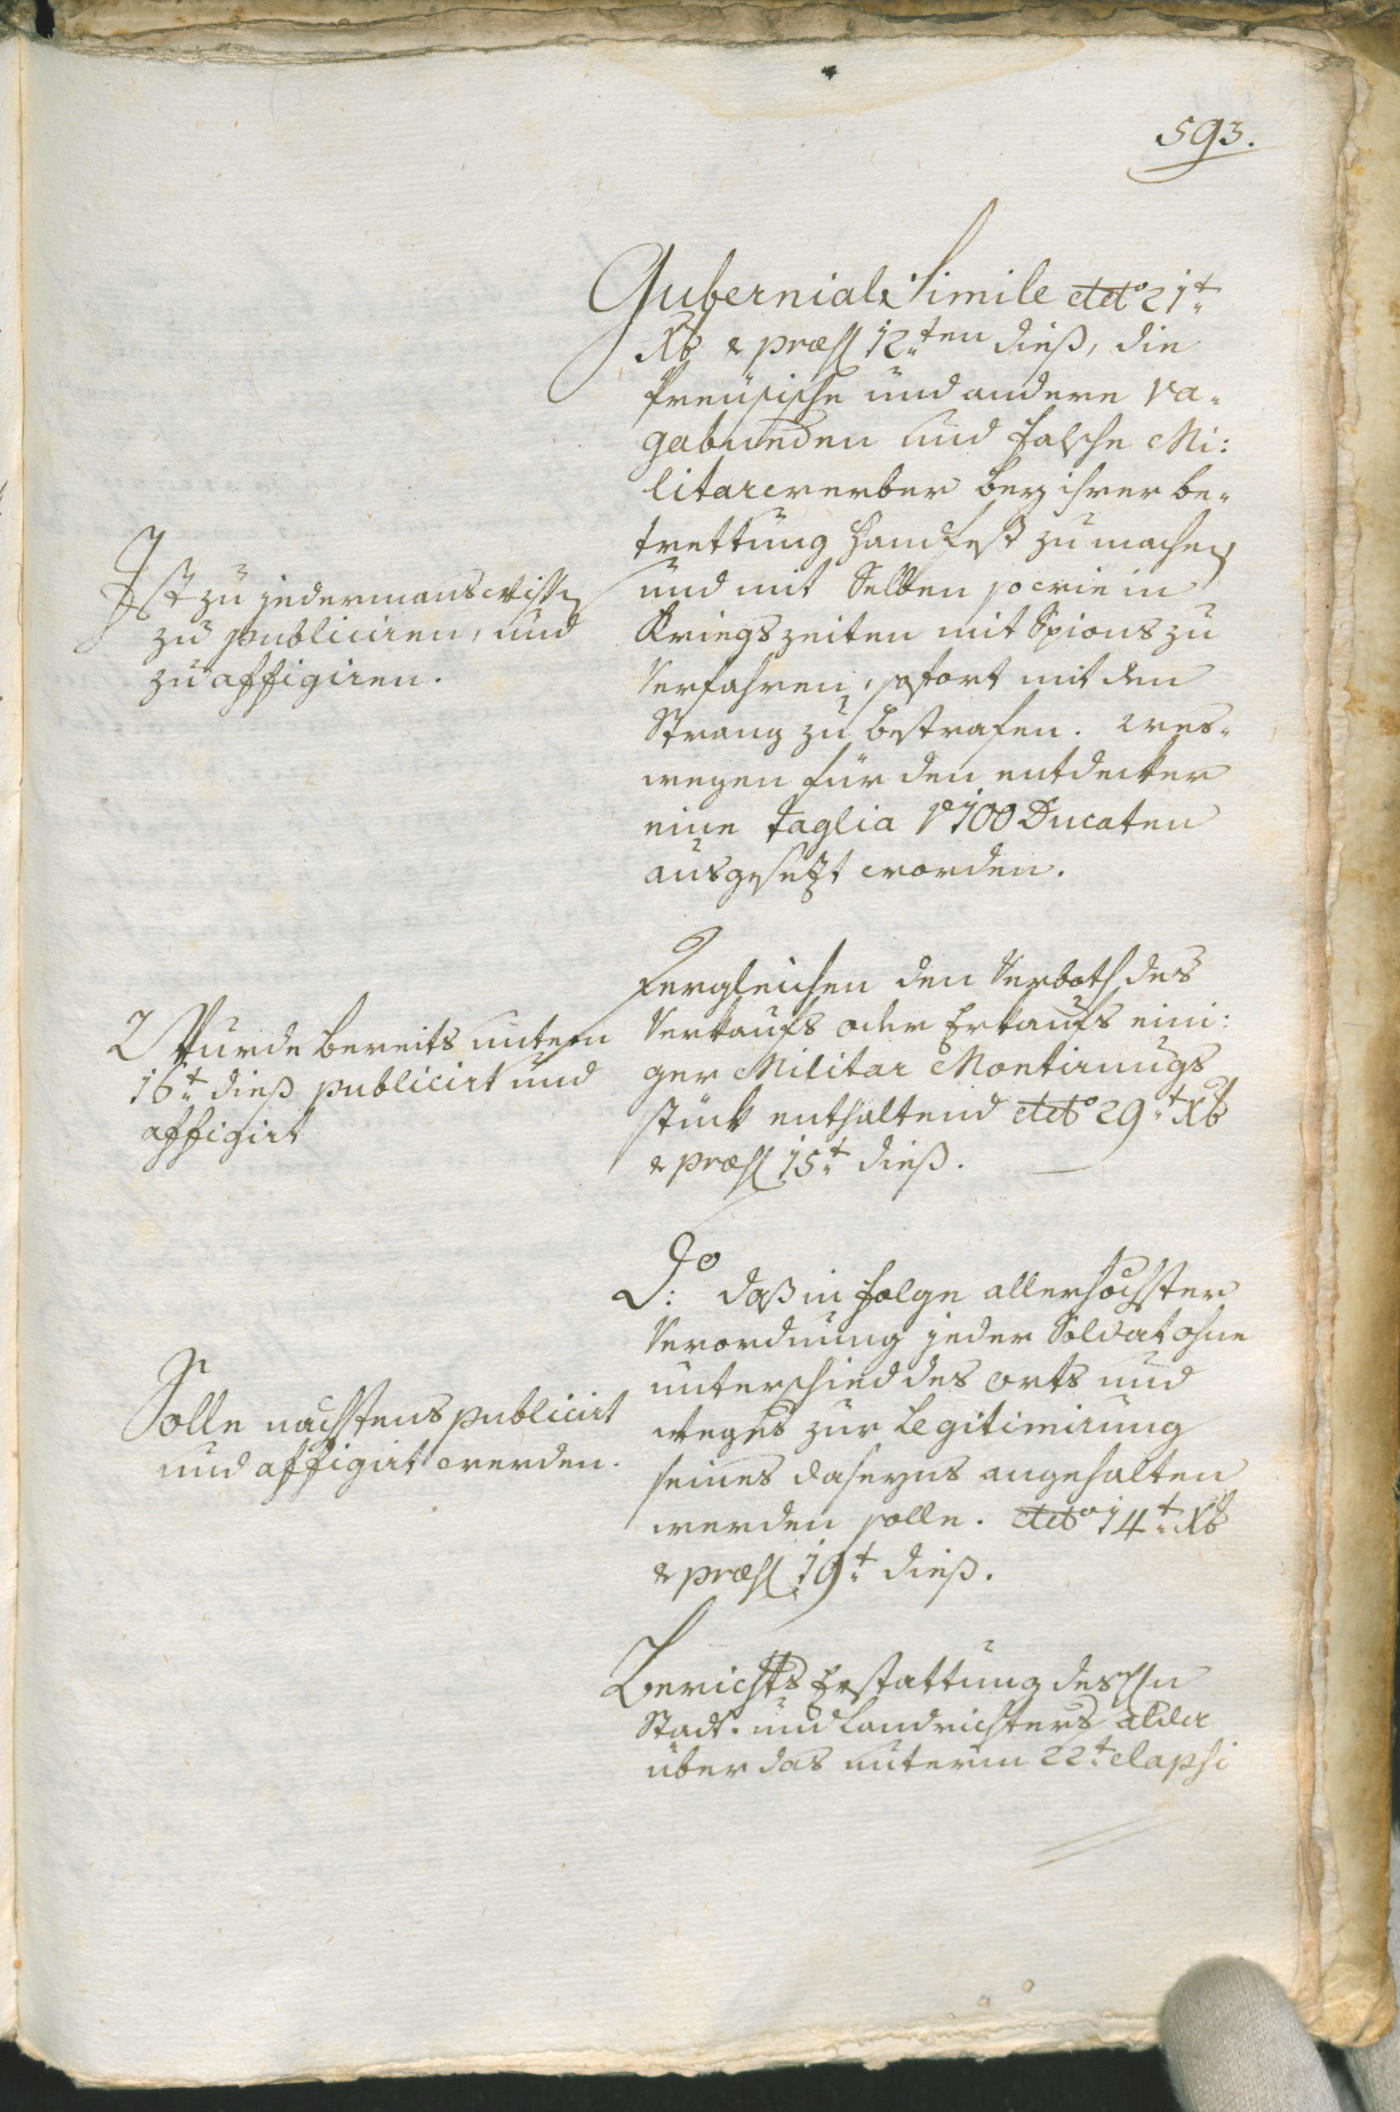 593.
Guberniale Simile ddto 21t
Xb & præs 12ten dieß, die
Preußische und andere va-
gabunden und falsche Mi:
litarwerber bey ihrer be-
trettung handfest zu machen
und mit Selben so wie in
Kriegszeiten mit Spions zu
Verfahren, sofort mit den
Strang zu bestrafen. wes-
wegen für den entdecker
eine taglia v 100 Ducaten
ausgesetzt worden.
Ist zu jedermans Wissen
zu publiciren, und
zu affigiren.
Dergleichen den Verboth des
Verkaufs oder Erkaufs eini:
ger Militar Montirungs
stück enthaltend ddto 29t Xb
& præs 15t dieß.
Wurde bereits untern
16t dieß publicirt und
affigirt
Do: daß in folge allerhöchster
Verordnung jeder Soldat ohne
unterschied des orts und
weges zur Legitimirung
seines daseyns angehalten
werden solle. ddto 14t Xb
& præs 19t dieß.
Solle nächstens publicirt
und affigirt werden.
Berichts Erstattung des Hn
Stadt- und Landrichters alda
über das unterm 22t elapsi